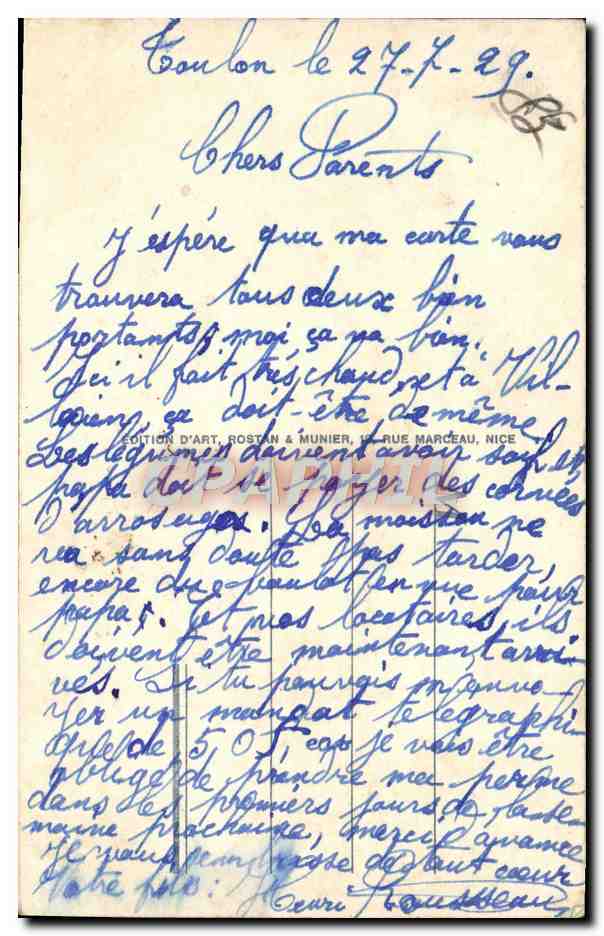 Toulon le 27-7-29.
85
Chers Parents
J'éspére que ma carte vous
trouvera tous deux bien
portants, moi ça va bien.
Ici il fait trés chaud, et a Vil-
ça doit-être de même.
EDITION D'ART, ROSTAN & MUNIER, RUE MARCEAU, NICE
Les légumes doivent avoir soif et
papa doit se payer des corvées
d'arrosages. La moisson ne
va sans doute pas tarder,
encore du boulot en vue pour
papa. Et nos locataires, ils
doivent être maintenant arri-
vés. Si tu pouvais m'envo-
yer un mandat télégraphi-
que de 5,0f, car je vais être
obligé de prendre ma perme
dans les premiers jours de la se-
maine prochaine, merci d'avance
Je vous embrasse de tout cœur
Votre fils : Henri Rousseau